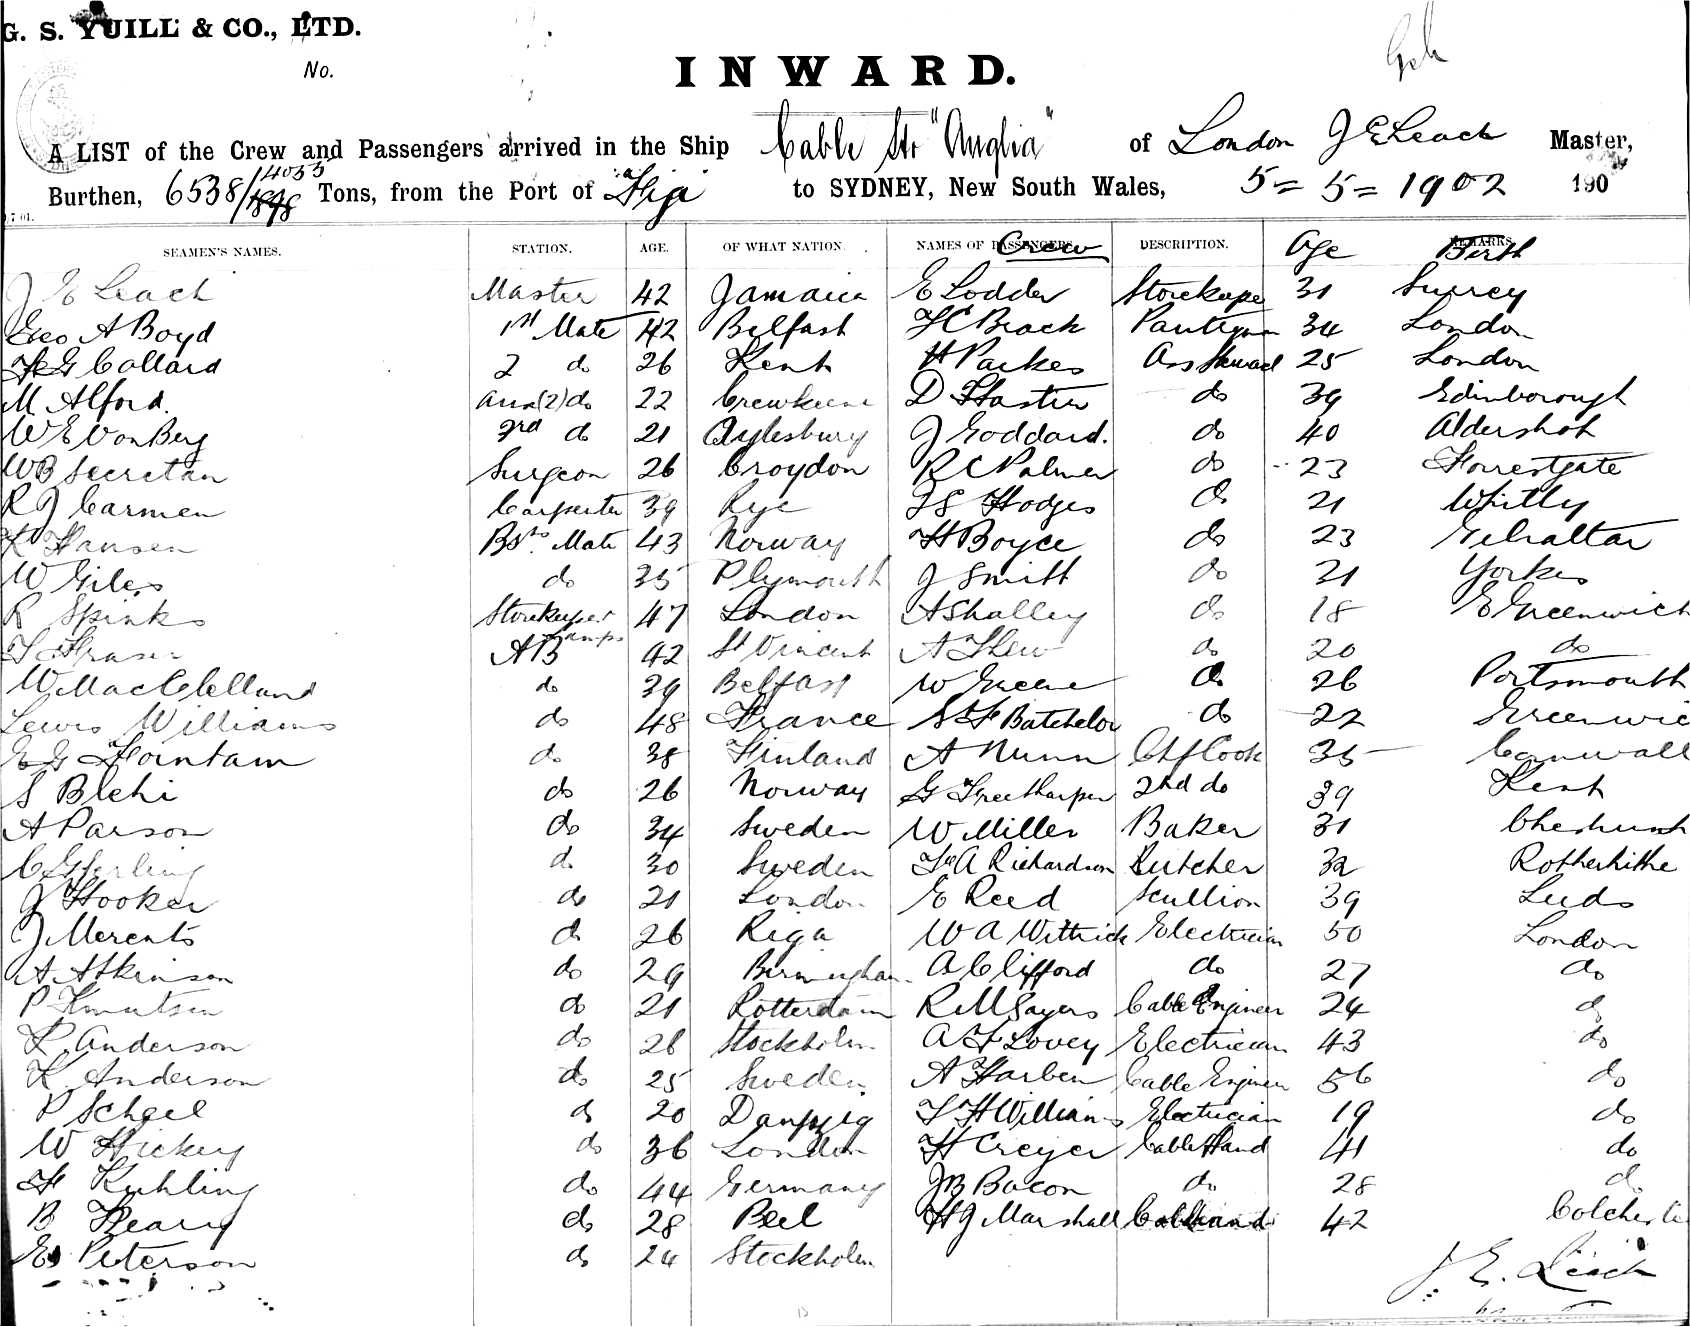 G. S. YUILL & CO., LTD.
No.
INWARD.
A LIST of the Crew and Passengers arrived in the Ship Cable Str "Anglia" of London J E Leach Master,
Burthen, 6538/4055 Tons, from the Port of Fiji to SYDNEY, New South Wales, 5 = 5 = 1902 190
SEAMEN'S NAMES. STATION. AGE. OF WHAT NATION. NAMES OF PASSENGERS Crew DESCRIPTION. Age REMARKS Birth
J E Leach Master 42 Jamaica E Lodder Storekeeper 31 Surrey
Geo A Boyd 1st Mate 42 Belfast F C Brock Pantryman 34 London
F G Collard 2 do 26 Kent H Parkes Ass Steward 25 London
M Alford. (2) do 22 Crewkerne D do 39 Edinborough
W E Von Berg 3rd do 21 Aylesbury J Goddard. do 40 Aldershot
W B Secretan Surgeon 26 Croydon R C Palmer do 23 Forrestgate
R J Carmen Carpenter 39 Rye Hodges do 21 Whitly
K Hansen Bsns Mate 43 Norway H Boyce do 23 Gibraltar
W Giles do 35 Plymouth J Smith do 21 Yorkes
R Spinks Storekeeper 47 London A Shalley do 18 E Greenwich
T Fraser AB Lamps 42 St Vincent A Thew do 20 do
W MacClelland do 39 Belfast W Greene do 26 Portsmouth
Lewis Williams do 48 France S F Batchelor do 22 Greenwic
E G Fountain do 38 Finland A Nunn Chf Cook 35 Cornwall
S Blehi do 26 Norway G Freetharper 2nd do 39 Kent
A Parson do 34 Sweden W Miller Baker 31 Cheshunt
C Gsterling do 30 Sweden F A Richardson Butcher 32 Rotherhithe
J Hooker do 21 London E Reed Scullion 39 Leeds
J Merents do 26 Riga W A Wittrick Electrician 50 London
A Atkinson do 29 Birmingham A Clifford do 27 do
P Knutsen do 21 Rotterdam R M Sayers Cable Engineer 24 do
R Anderson do 26 Stockholm A F Lovey Electrician 43 do
K Anderson do 25 Sweden A Harben Cable Engineer 56 do
P Scheel do 20 Danzzig F H Williams Electrician 19 do
W Hickey do 36 London H Creyer Cable Hand 41 do
F Kuhling do 44 Germany J B Bacon do 28 do
B Feary do 28 Peel H J Marshall Cablehand 42 Colcheste
E Peterson do 24 Stockholm
J. E. Leach